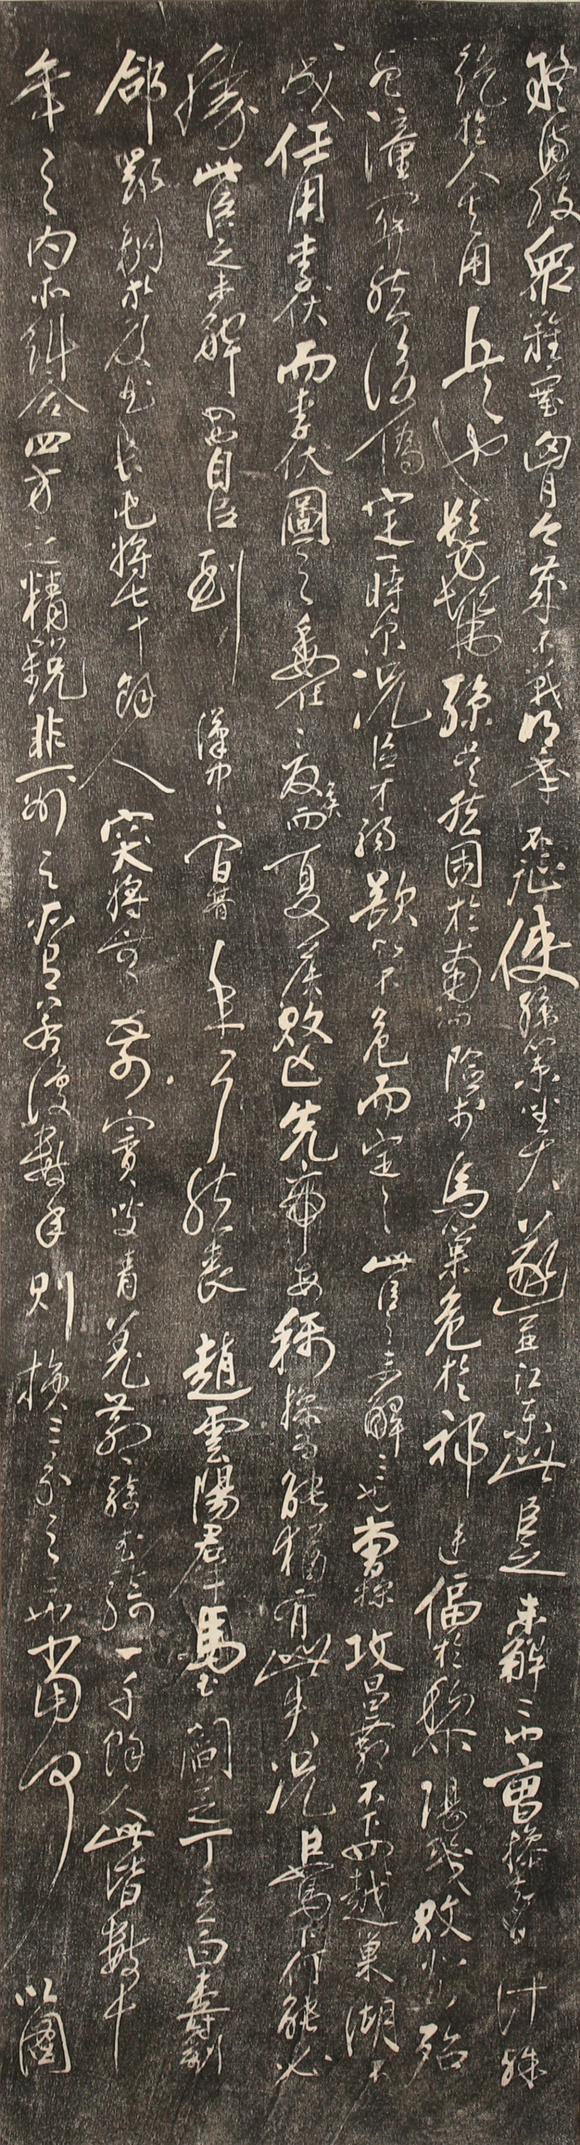 疑滿腹衆難塞胸今歲不戰明年不征使孫策坐大遂並江東此臣之未解二也曹操智計殊
絕於人其用兵也髣髴孫吳然困於南陽險於烏巢危於祁連偪於黎陽幾敗北山殆
死潼關然後偽定一時爾況臣才弱欲以不危而定之此臣之未解三也曹操攻昌霸不下四越巢湖不
成任用李伏而李伏圖之委任夏侯而夏侯敗亡先帝每稱操為能猶有此失況臣駑下何能必
勝此臣之未解四也自臣到漢中中間朞年耳然喪趙雲陽羣馬玉閻芝丁立白壽劉
郃鄧銅等及曲長屯將七十餘人突將無前賨叟青羌散騎武騎一千餘人此皆數十
年之內所糾合四方之精銳非一州之所有若復數年則損三分之二也當何以圖